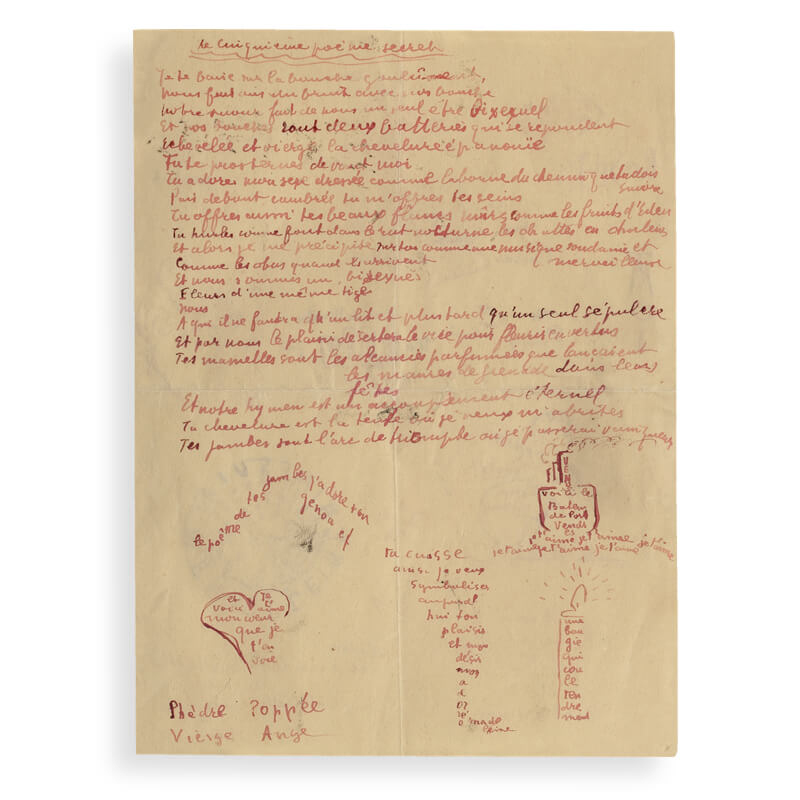 Le cinquième poème secret
Je te baise sur la bouche goulûment,
Nous faisons un bruit avec nos bouche
Notre amour fait de nous un seul être bixexuel
Et nos bouches sont deux batteries qui se répondent
échevelée et vierge la chevelure épanouie
Tu te prosternes devant moi
Tu adores mon sexe dressée comme la borne du chemin que tu dois
suivre
Puis debout cambrée tu m'offres tes seins
Tu offres aussi tes beaux flancs mûrs comme les fruits d'Eden
Tu hurles comme font dans le rut nocturne les chattes en chaleur
Et alors je me précipite sur toi comme une musique soudaine et
merveilleuse
Comme les obus quand ils arrivent
Et nous sommes un, bixexués
Fleurs d'une même tige
Nous
A qui il ne faudra qu'un lit et plus tard qu'un seul sépulcre
Et par nous le plaisir désertera le vice pour fleurir en vertus
Tes mamelles sont les alcancies parfumées que lançaient
les maures de grenade dans leurs
fêtes
Et notre hymen est un accouplement éternel
Ta chevelure est la tente où je veux m'abriter
Tes jambes sont l'arc de triomphe où je passerai vainqueur
le poème de tes jambes j'adore ton genou
et voici mon cœur que je t'ai voie
Je t'aime
voici le
Bateau
de Port
Vendres
je t'aime je t'aime je t'aime
je t'aime je t'aime je t'aime
ta cuisse
aussi je veux
symboliser
aujourd
hui ton
plaisir
et mon
désir
mon
a
d
or
é
o ma de
leine
une
bou
gie
qui
cou
le
ten
dre
ment
Phèdre Poppée
Vierge Ange